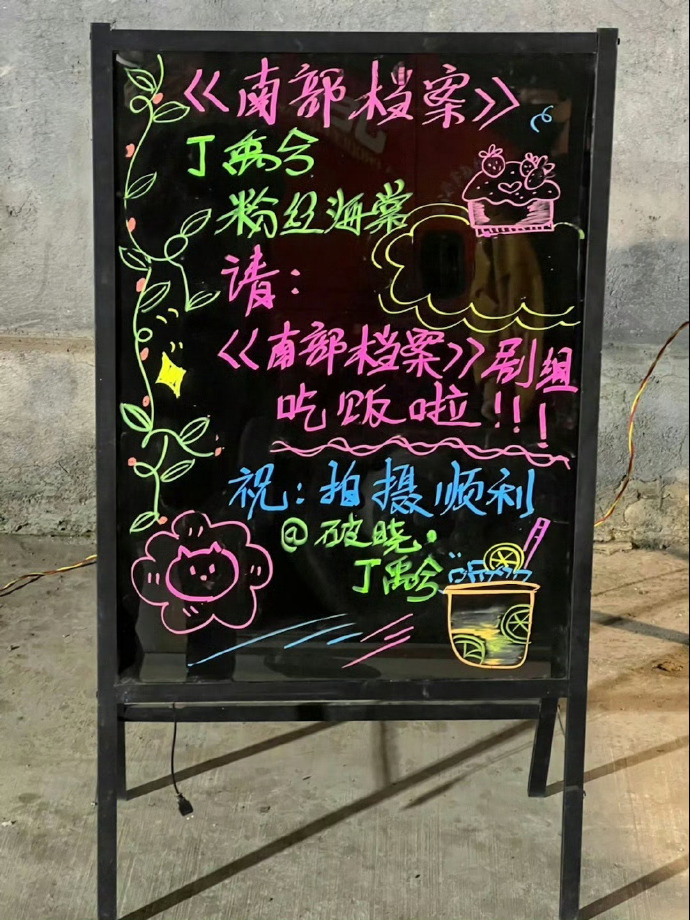 《南部档案》
丁禹兮
粉丝海棠
请：
《南部档案》剧组
吃饭啦!!!
祝：拍摄顺利
@破晓.
丁禹兮